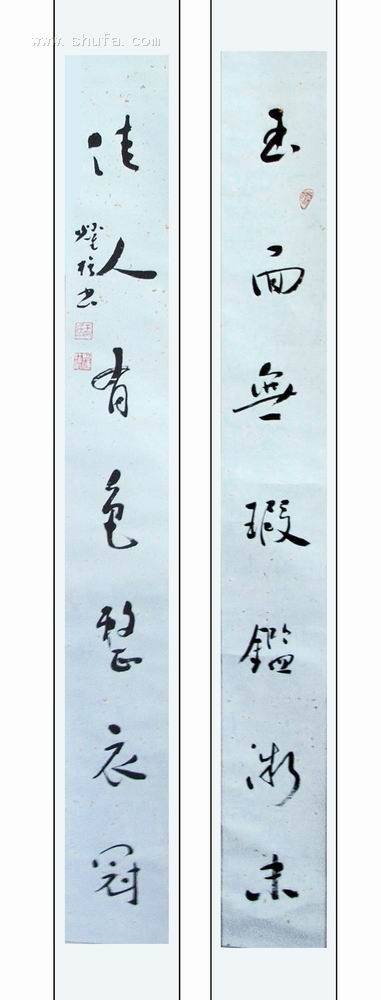 www.shufa.com
玉面無瑕鑑微末
佳人有色整衣冠
书